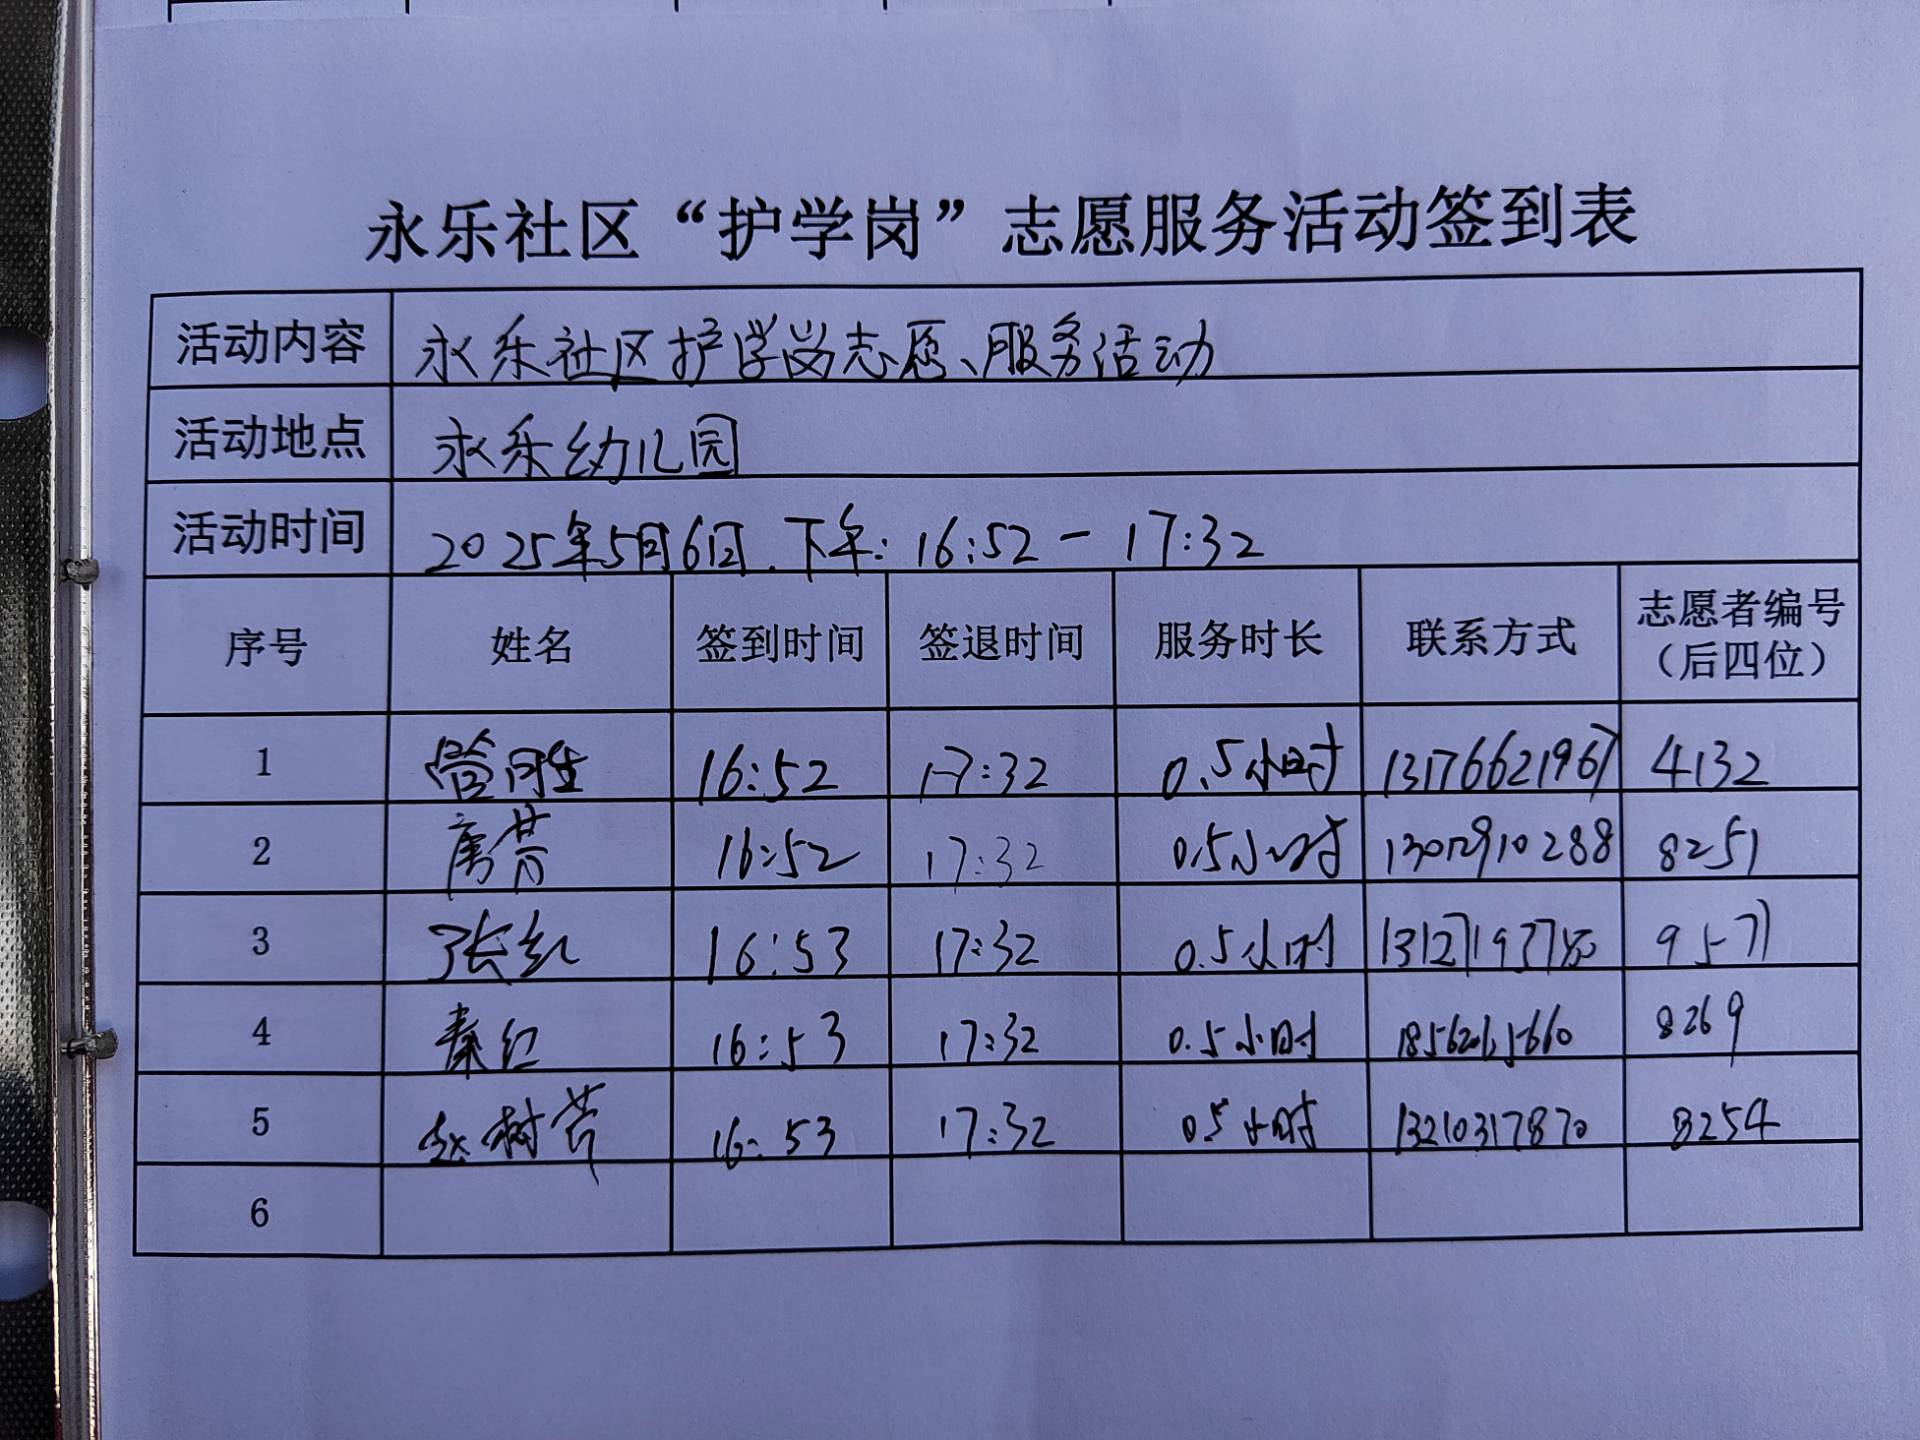 永乐社区“护学岗”志愿服务活动签到表
活动内容 永乐社区护学岗志愿、服务活动
活动地点 永乐幼儿园
活动时间 2025年5月6日.下午:16:52-17:32
序号 姓名 签到时间 签退时间 服务时长 联系方式 志愿者编号（后四位）
1 管同生 16:52 17:32 0.5小时 13176621967 4132
2 唐芹 16:52 17:32 0.5小时 8251
3 张红 16:53 17:32 0.5小时 9571
4 秦红 16:53 17:32 0.5小时 18562615660 8269
5 赵树芹 16:53 17:32 0.5小时 13210317870 8254
6